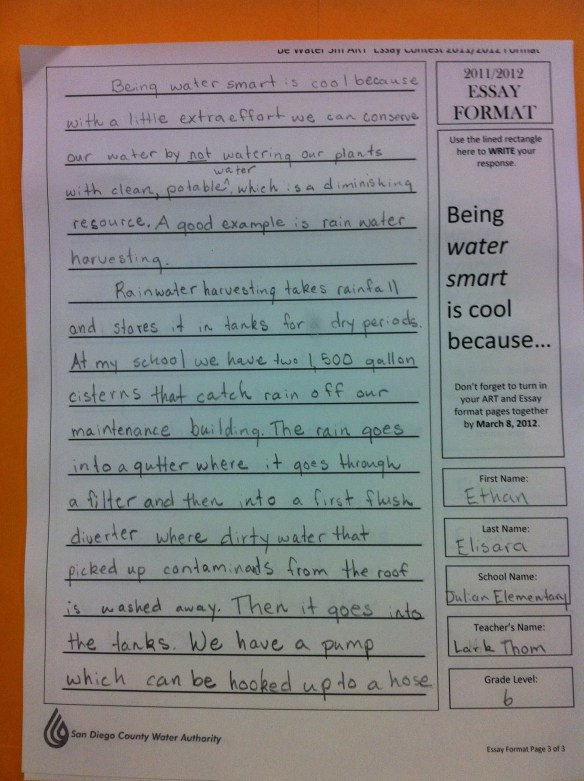 Be Water Sm ART Essay Contest 2011/2012 Format
Being water smart is cool because
with a little extra effort we can conserve
our water by not watering our plants
water
with clean, potable^, which is a diminishing
resource. A good example is rain water
harvesting.
Rainwater harvesting takes rainfall
and stores it in tanks for a dry periods.
At my school we have two 1,500 gallon
cisterns that catch rain off our
maintenance building. The rain goes
into a gutter where it goes through
a filter and then into a first flush
diverter where dirty water that
picked up contaminads from the roof
is washed away. Then it goes into
the tanks. We have a pump
which can be hooked up to a hose.
2011/2012
ESSAY
FORMAT
Use the lined rectangle
here to WRITE your
response.
Being
water
smart
is cool
because...
Don't forget to turn in
your ART and Essay
format pages together
by March 8, 2012.
First Name:
Ethan
Last Name:
Elisara
School Name:
Julian Elementary
Teacher's Name:
Lark Thom
Grade Level:
6
San Diego County Water Authority
Essay Format Page 3 of 3